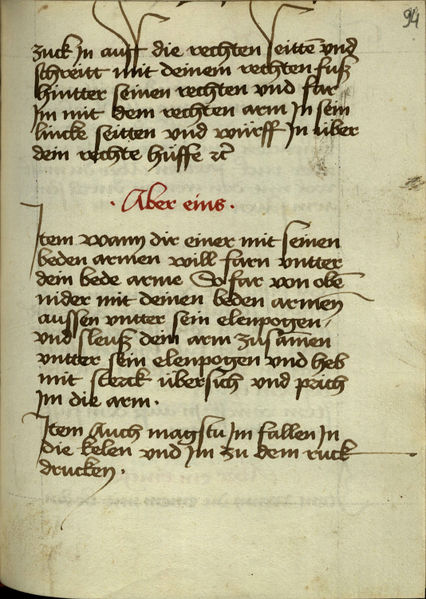 94
zuck In auff die rechten seittē vnd
schreitt mit deinem rechten fuß
hintter seinen rechten vnd far
Im mit dem rechten arm In sein
lincke seitten vnd würff In über
dein rechte hüffe ꝛc̃
· Aber eins ·
Item Wann dir einer mit seinen
beden armen will farn vntter
dein bede arme So far von obē
nider mit deinen beden armen
aussen vntter sein elenpogen /
vnd sleuß dein arm zusāmen
vntter sein elenpogen vnd heb
mit sterck übersich vnd prich
Im die arm ·
Item Auch magstu Im fallen In
die kelen vnd Im zu dem ruck
drucken ·